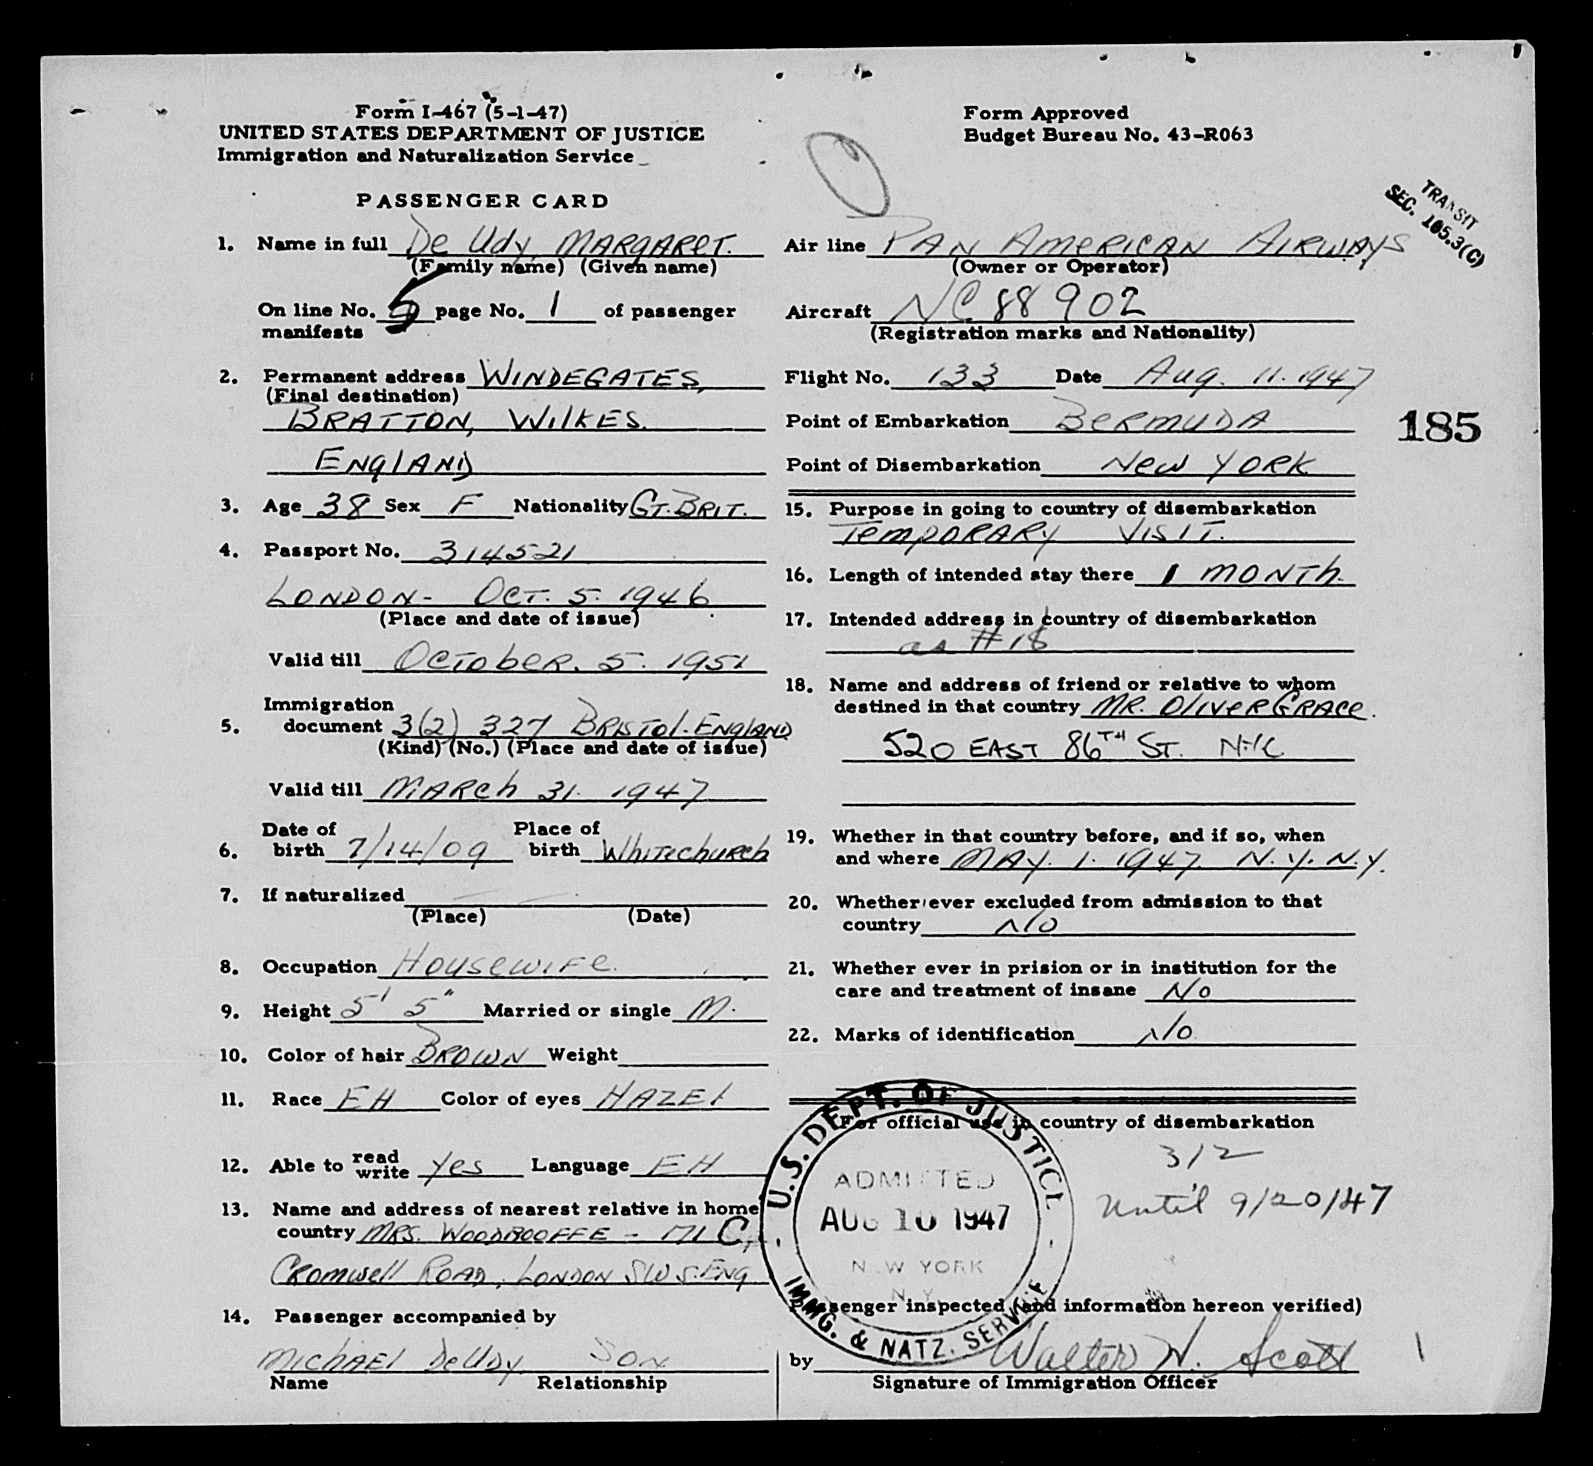 Form I-467 (5-1-47)
UNITED STATES DEPARTMENT OF JUSTICE
Immigration and Naturalization Service
PASSENGER CARD
1. Name in full De Udy, MARGARET.
(Family name) (Given name)
On line No. 5 page No. 1 of passenger
manifests
2. Permanent address WINDEGATES,
(Final destination)
BRATTON, WILKES.
ENGLAND
3. Age 38 Sex F Nationality GT. BRIT.
4. Passport No. 314521
LONDON - OCT. 5. 1946
(Place and date of issue)
Valid till OCTOBER. 5. 1951
Immigration
5. document 3(2) 327 BRISTOL-ENGLAND
(Kind) (No.) (Place and date of issue)
Valid till MARCH 31. 1947
Date of Place of
6. birth 7/14/09 birth WHITECHURCH
7. If naturalized
(Place) (Date)
8. Occupation HOUSEWIFE.
9. Height 5' 5" Married or single M.
10. Color of hair BROWN Weight
11. Race EH Color of eyes HAZEL
12. Able to read write Yes Language EH
13. Name and address of nearest relative in home
country MRS. WOODROOFFE - 171 C,
CROMWELL ROAD, LONDON SW 5. ENG
14. Passenger accompanied by
MICHAEL DeUDY Son
Name Relationship
Form Approved
Budget Bureau No. 43-R063
TRANSIT
SEC. 105.3(C)
Air line PAN AMERICAN AIRWAYS
(Owner or Operator)
Aircraft NC 88902
(Registration marks and Nationality)
Flight No. 133 Date Aug. 11. 1947
Point of Embarkation BERMUDA
185
Point of Disembarkation NEW YORK
15. Purpose in going to country of disembarkation
TEMPORARY VISIT.
16. Length of intended stay there 1 MONTH.
17. Intended address in country of disembarkation
as #18
18. Name and address of friend or relative to whom
destined in that country MR. OLIVER GRACE.
520 EAST 86TH ST. NYC
19. Whether in that country before, and if so, when
and where MAY. 1. 1947. N.Y. N.Y.
20. Whether ever excluded from admission to that
country NO
21. Whether ever in prision or in institution for the
care and treatment of insane No
22. Marks of identification NO
For official use in country of disembarkation
3/2
Until 9/20/47
U.S. DEPT. OF JUSTICE
ADMITTED
AUG 10 1947
NEW YORK
N.Y.
IMMG. & NATZ. SERVICE
(Passenger inspected and information hereon verified)
by Walter W. Scott
Signature of Immigration Officer